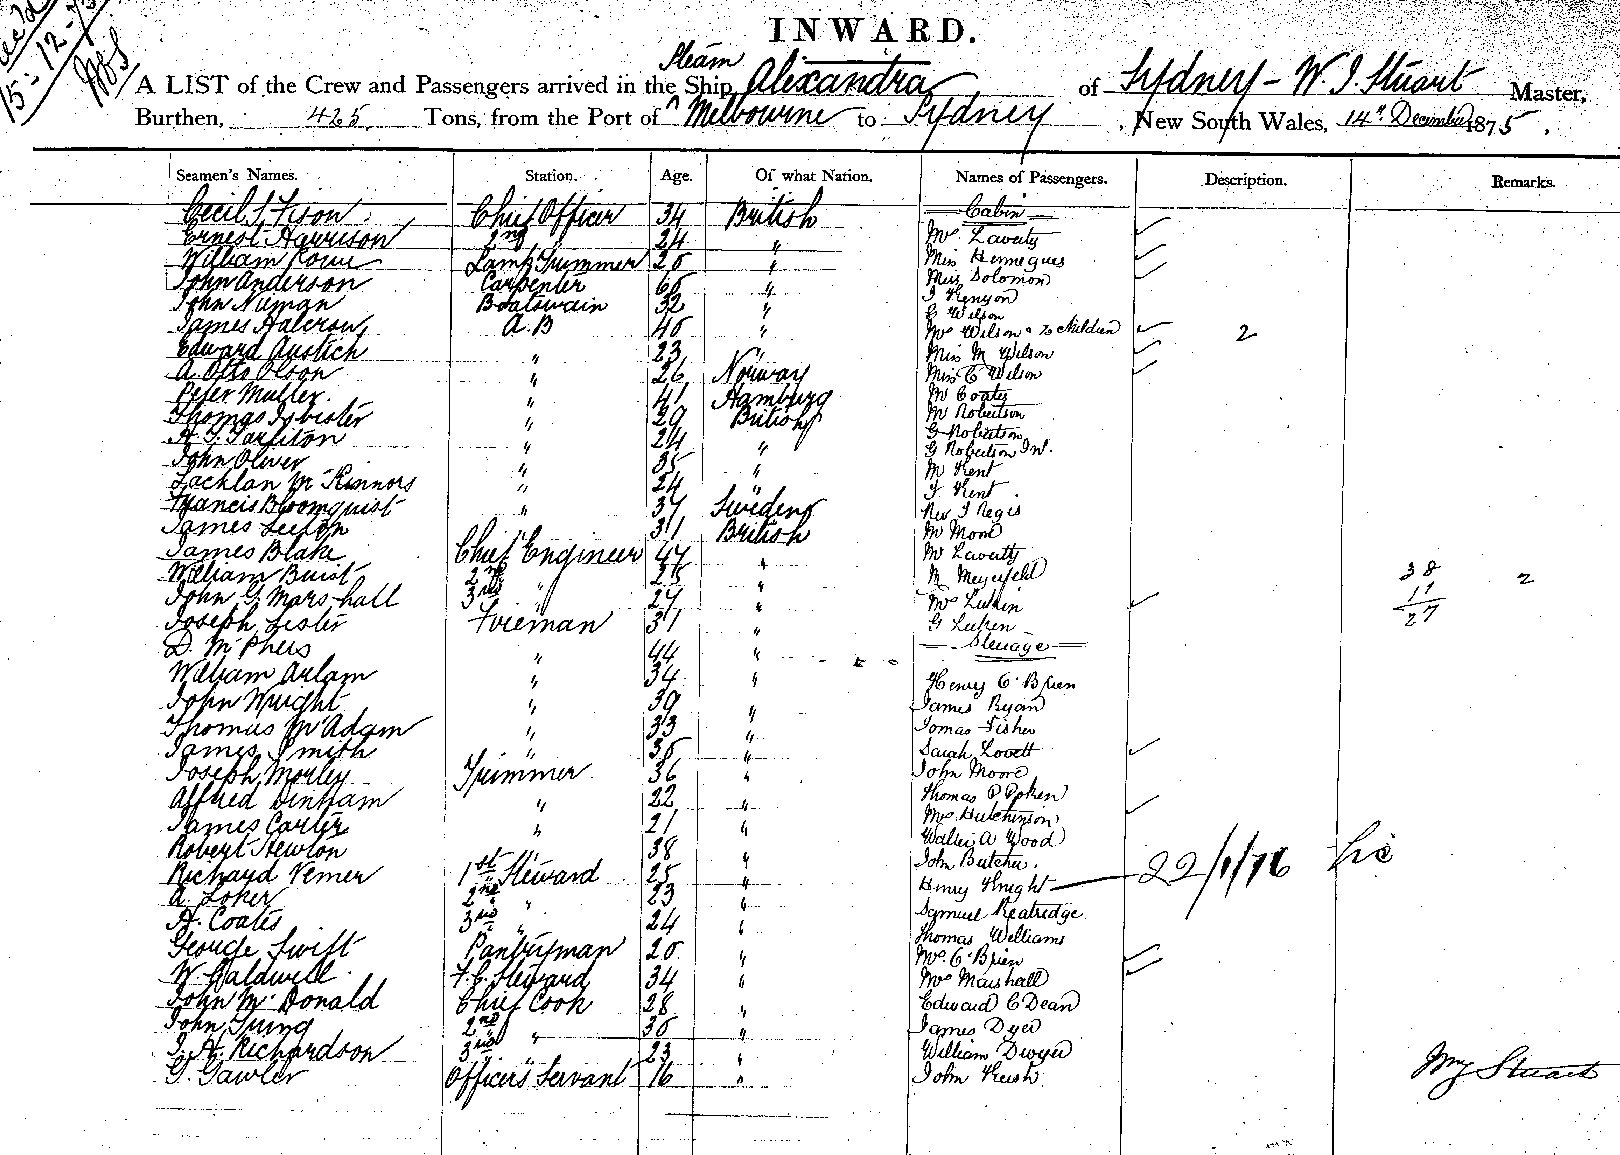 INWARD.
15-12-75
Steam
A LIST of the Crew and Passengers arrived in the Ship Alexandra of Sydney - W. J. Stuart Master,
Burthen, 425 Tons, from the Port of Melbourne to Sydney, New South Wales, 14th December 1875.
Seamen's Names. Station. Age. Of what Nation. Names of Passengers. Description. Remarks.
Cecil S. Fison Chief Officer 34 British Cabin
Ernest Harrison 2nd " 24 " Mrs Laverty
William Lamp Trimmer " Miss Henneques
John Anderson Carpenter " Miss Solomon
John Numan Boatswain 32 " J Kenyon
G Wilson
James Halcrow A.B " Mrs Wilson & 2 Children 2
Edward Austich " 23 " Miss M Wilson
A. Otto Olson " 26 Norway Miss C Wilson
Peter Muller. " 41 Hamburg Mr Coates
Thomas Isbister " 29 British Mr Robertson
H. T. Tarliton " 24 " G Robertson
John Oliver " 35 " G Robertson Jnr.
Lachlan McKinnors " 24 " Mr Kent
Francis Bloomquist " 37 Sweden J Kent
Rev J Regis
James " 31 British Mr Moore
James Blake Chief Engineer 47 " Mr Laverty
William Buist 2nd " 25 " Mr Meyerfeld 38 2
John G. Marshall 3rd " 27 " Mrs Luken 11
Joseph Lister Fireman 31 " G Luken 27
D. McPhers " 44 " Steerage
William Arlam " 34 " Henry O'Brien
John Wright " 39 " James Ryan
Thomas McAdam " 33 " Tomas Fisher
James Smith " " Sarah Lovett
Joseph Morley Trimmer 36 " John Moore
Alfred Dinham " 22 " Thomas P
James Carter " 21 " Mrs Hutchinson
Robert Newton " 38 " Walter A Wood
Richard Vemer 1st Steward 25 " John Butcher.
A. Loker 2nd " 23 " Henry Knight 22/1/76
H. Coates 3rd " 24 " Samuel Keatridge
George Swift Pantryman 20 " Thomas Williams
Mrs O'Brien
W. Caldwell F.C. Steward 34 " Mrs Marshall
John McDonald Chief Cook 28 " Edward C Dean
John 2nd " " James Dyer
J. H. Richardson 3rd " 23 " William Dwyer
G. Gawler Officers Servant 16 " John Keish
Wm J Stuart